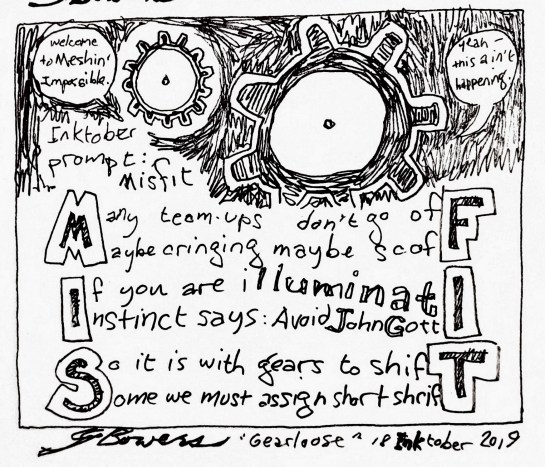 welcome
to Meshin'
Impossible.
yeah –
this ain't
happening.
Inktober
prompt:
Misfit
Many team-ups don't go off
Maybe cringing maybe scoff
If you are illuminati
Instinct says: Avoid John Gotti
So it is with gears to shift
Some we must assign short shrift
J Bowers "Gearloose" 18 Inktober 2019